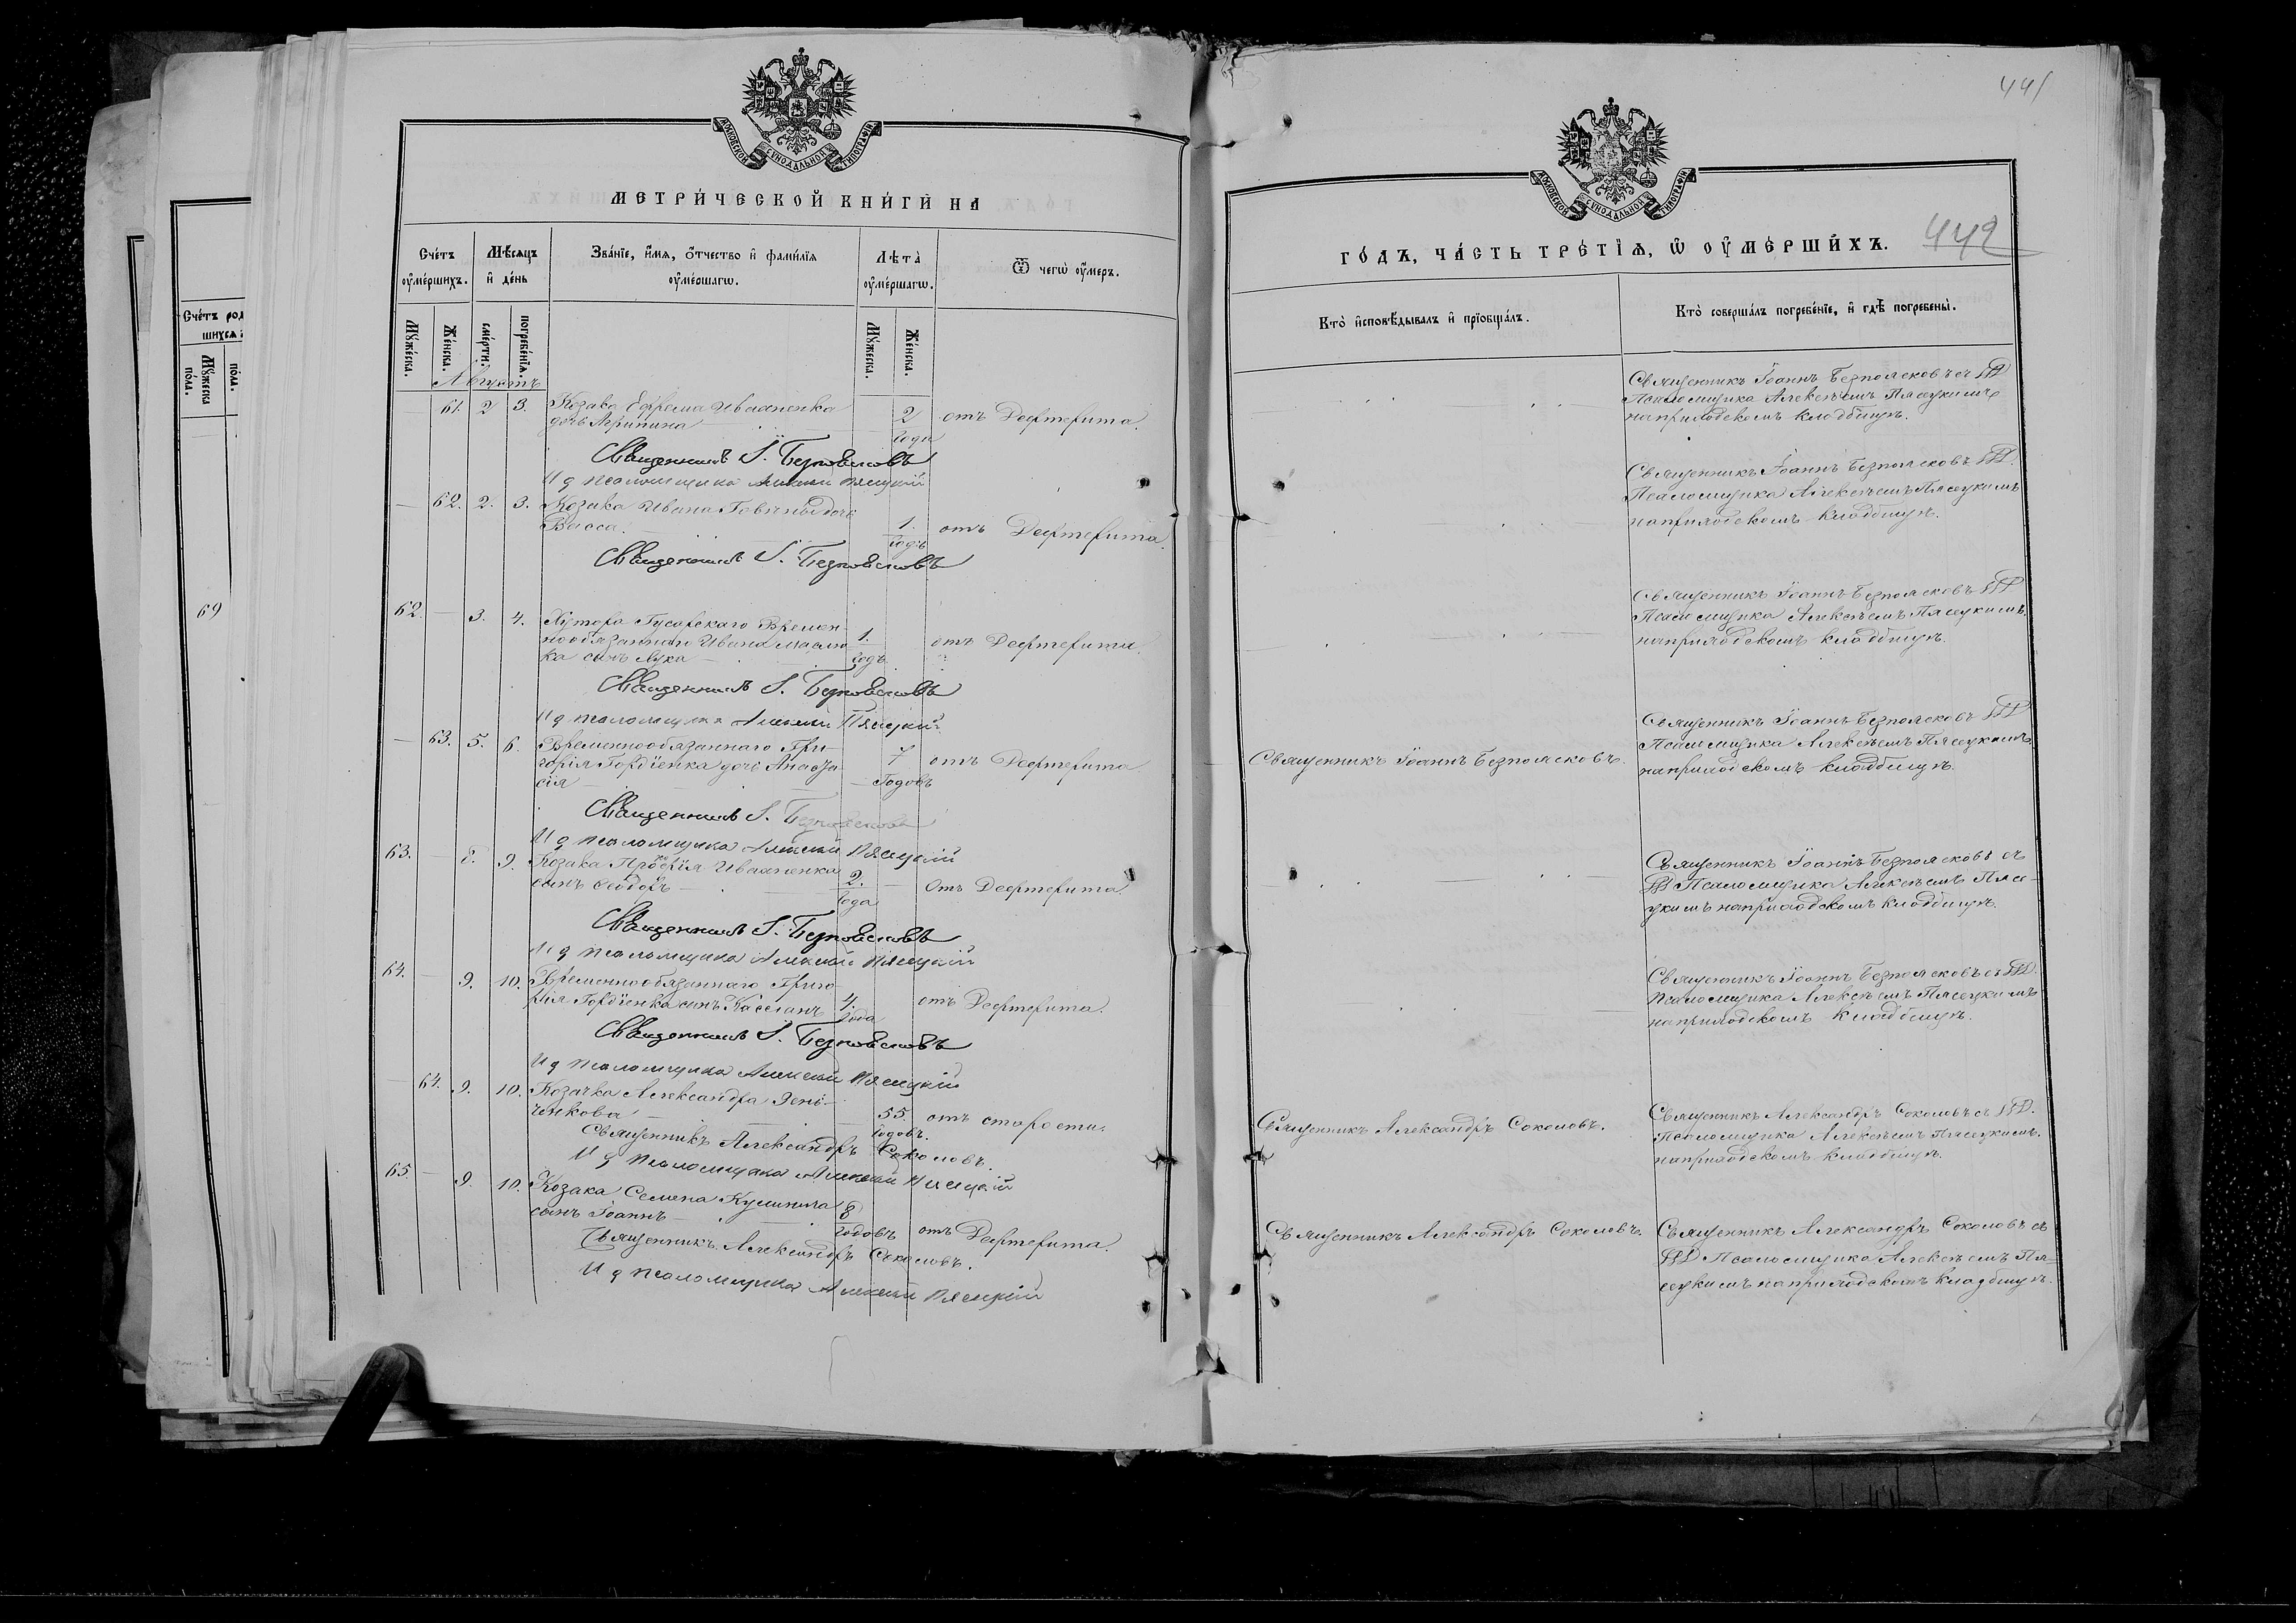 МОСКОВСКОЙ СѴНОДАЛЬНОЙ ТИПОГРАФІИ
МЕТРИ́ЧЕСКОЙ КНИ́ГИ НА
Сче́тъ оу҆ме́ршихъ.
Мѣ́сяцъ и҆ де́нь
Зва́нїе, и҆́мѧ, ѻ҆́тчество и҆ фами́лїѧ оу҆ме́ршагѡ.
Лѣта̀ оу҆ме́ршагѡ.
Ѿ чегѡ̀ оу҆́меръ.
Мꙋ́жеска.
Же́нска.
сме́рти.
погребе́нїѧ.
Мꙋ́жеска.
Же́нска.
Августъ
— 61. 2 3. Козака Ефрема Ивахненка — 2 отъ Дефтерита.
дочь Агрипина — года
Священникъ І. Безпоясковъ
И д псаломщика Алексій Пясецкій
— 62. 2. 3. Козака Ивана Говіны дочь 1. отъ Дефтерита.
Васса. — годъ
Священникъ І. Безпоясковъ
62. — 3. 4. Хутора Гусарскаго Времен-
нообязаннаго Ивана Маслю- 1. отъ Дефтерита.
ка сынъ Лука — годъ
Священникъ І. Безпоясковъ
И д псаломщика Алексій Пясецкій
— 63. 5. 6. Временнообязаннаго Гри- 7 отъ Дефтерита
горія Гордіенка дочь Анаста- Годовъ
сія —
Священникъ І. Безпоясковъ
И д псаломщика Алексій Пясецкій
63. — 8. 9. Козака Прокопія Ивахненка 2. — Отъ Дефтерита
сынъ Ѳеодоръ — года
Священникъ І. Безпоясковъ
И д псаломщика Алексій Пясецкій
64. — 9. 10. Временнообязаннаго Григо- 4. отъ Дефтерита.
рія Гордіенка сынъ Кассіанъ года
Священникъ І. Безпоясковъ
И д псаломщика Алексій Пясецкій
— 64. 9. 10. Козачка Александра Зень-
ченкова — 55. отъ старости.
годовъ.
Священникъ Александръ Соколовъ.
И д псаломщика Алексій Пясецкій
65. — 9. 10. Козака Семена Кулинича 8
сынъ Іоаннъ — годовъ отъ Дефтерита.
Священникъ Александръ Соколовъ.
И д псаломщика Алексій Пясецкій
441
МОСКОВСКОЙ СѴНОДАЛЬНОЙ ТИПОГРАФІИ
442
ГО́ДЪ, ЧА́СТЬ ТРЕ́ТЇѦ, Ѡ҆ ОУ҆МЕ́РШИХЪ.
Кто̀ и҆сповѣ́дывалъ и҆ прїобща́лъ.
Кто̀ соверша́лъ погребе́нїе, и҆ гдѣ̀ погребены̀.
Священникъ Іоаннъ Безпоясковъ съ И Д
Псаломщика Алексѣемъ Пясецкимъ
на приходскомъ кладбищѣ.
Священникъ Іоаннъ Безпоясковъ И Д.
Псаломщика Алексѣемъ Пясецкимъ
на приходскомъ кладбищѣ.
Священникъ Іоаннъ Безпоясковъ И Д
Псаломщика Алексѣемъ Пясецкимъ
на приходскомъ кладбищѣ.
Священникъ Іоаннъ Безпоясковъ.
Священникъ Іоаннъ Безпоясковъ И Д
Псаломщика Алексѣемъ Пясецкимъ
на приходскомъ кладбищѣ.
Священникъ Іоаннъ Безпоясковъ съ
И Д Псаломщика Алексѣемъ Пясе-
цкимъ на приходскомъ кладбищѣ.
Священникъ Іоаннъ Безпоясковъ съ И Д.
Псаломщика Алексѣемъ Пясецкимъ
на приходскомъ кладбищѣ.
Священникъ Александръ Соколовъ.
Священникъ Александръ Соколовъ съ И Д.
Псаломщика Алексѣемъ Пясецкимъ.
на приходскомъ кладбищѣ.
Священникъ Александръ Соколовъ.
Священникъ Александръ Соколовъ съ
И Д Псаломщика Алексѣемъ Пя-
сецкимъ на приходскомъ кладбищѣ.
Сче́тъ род
шихсѧ
Мꙋ́жеска по́ла.
по́ла.
69